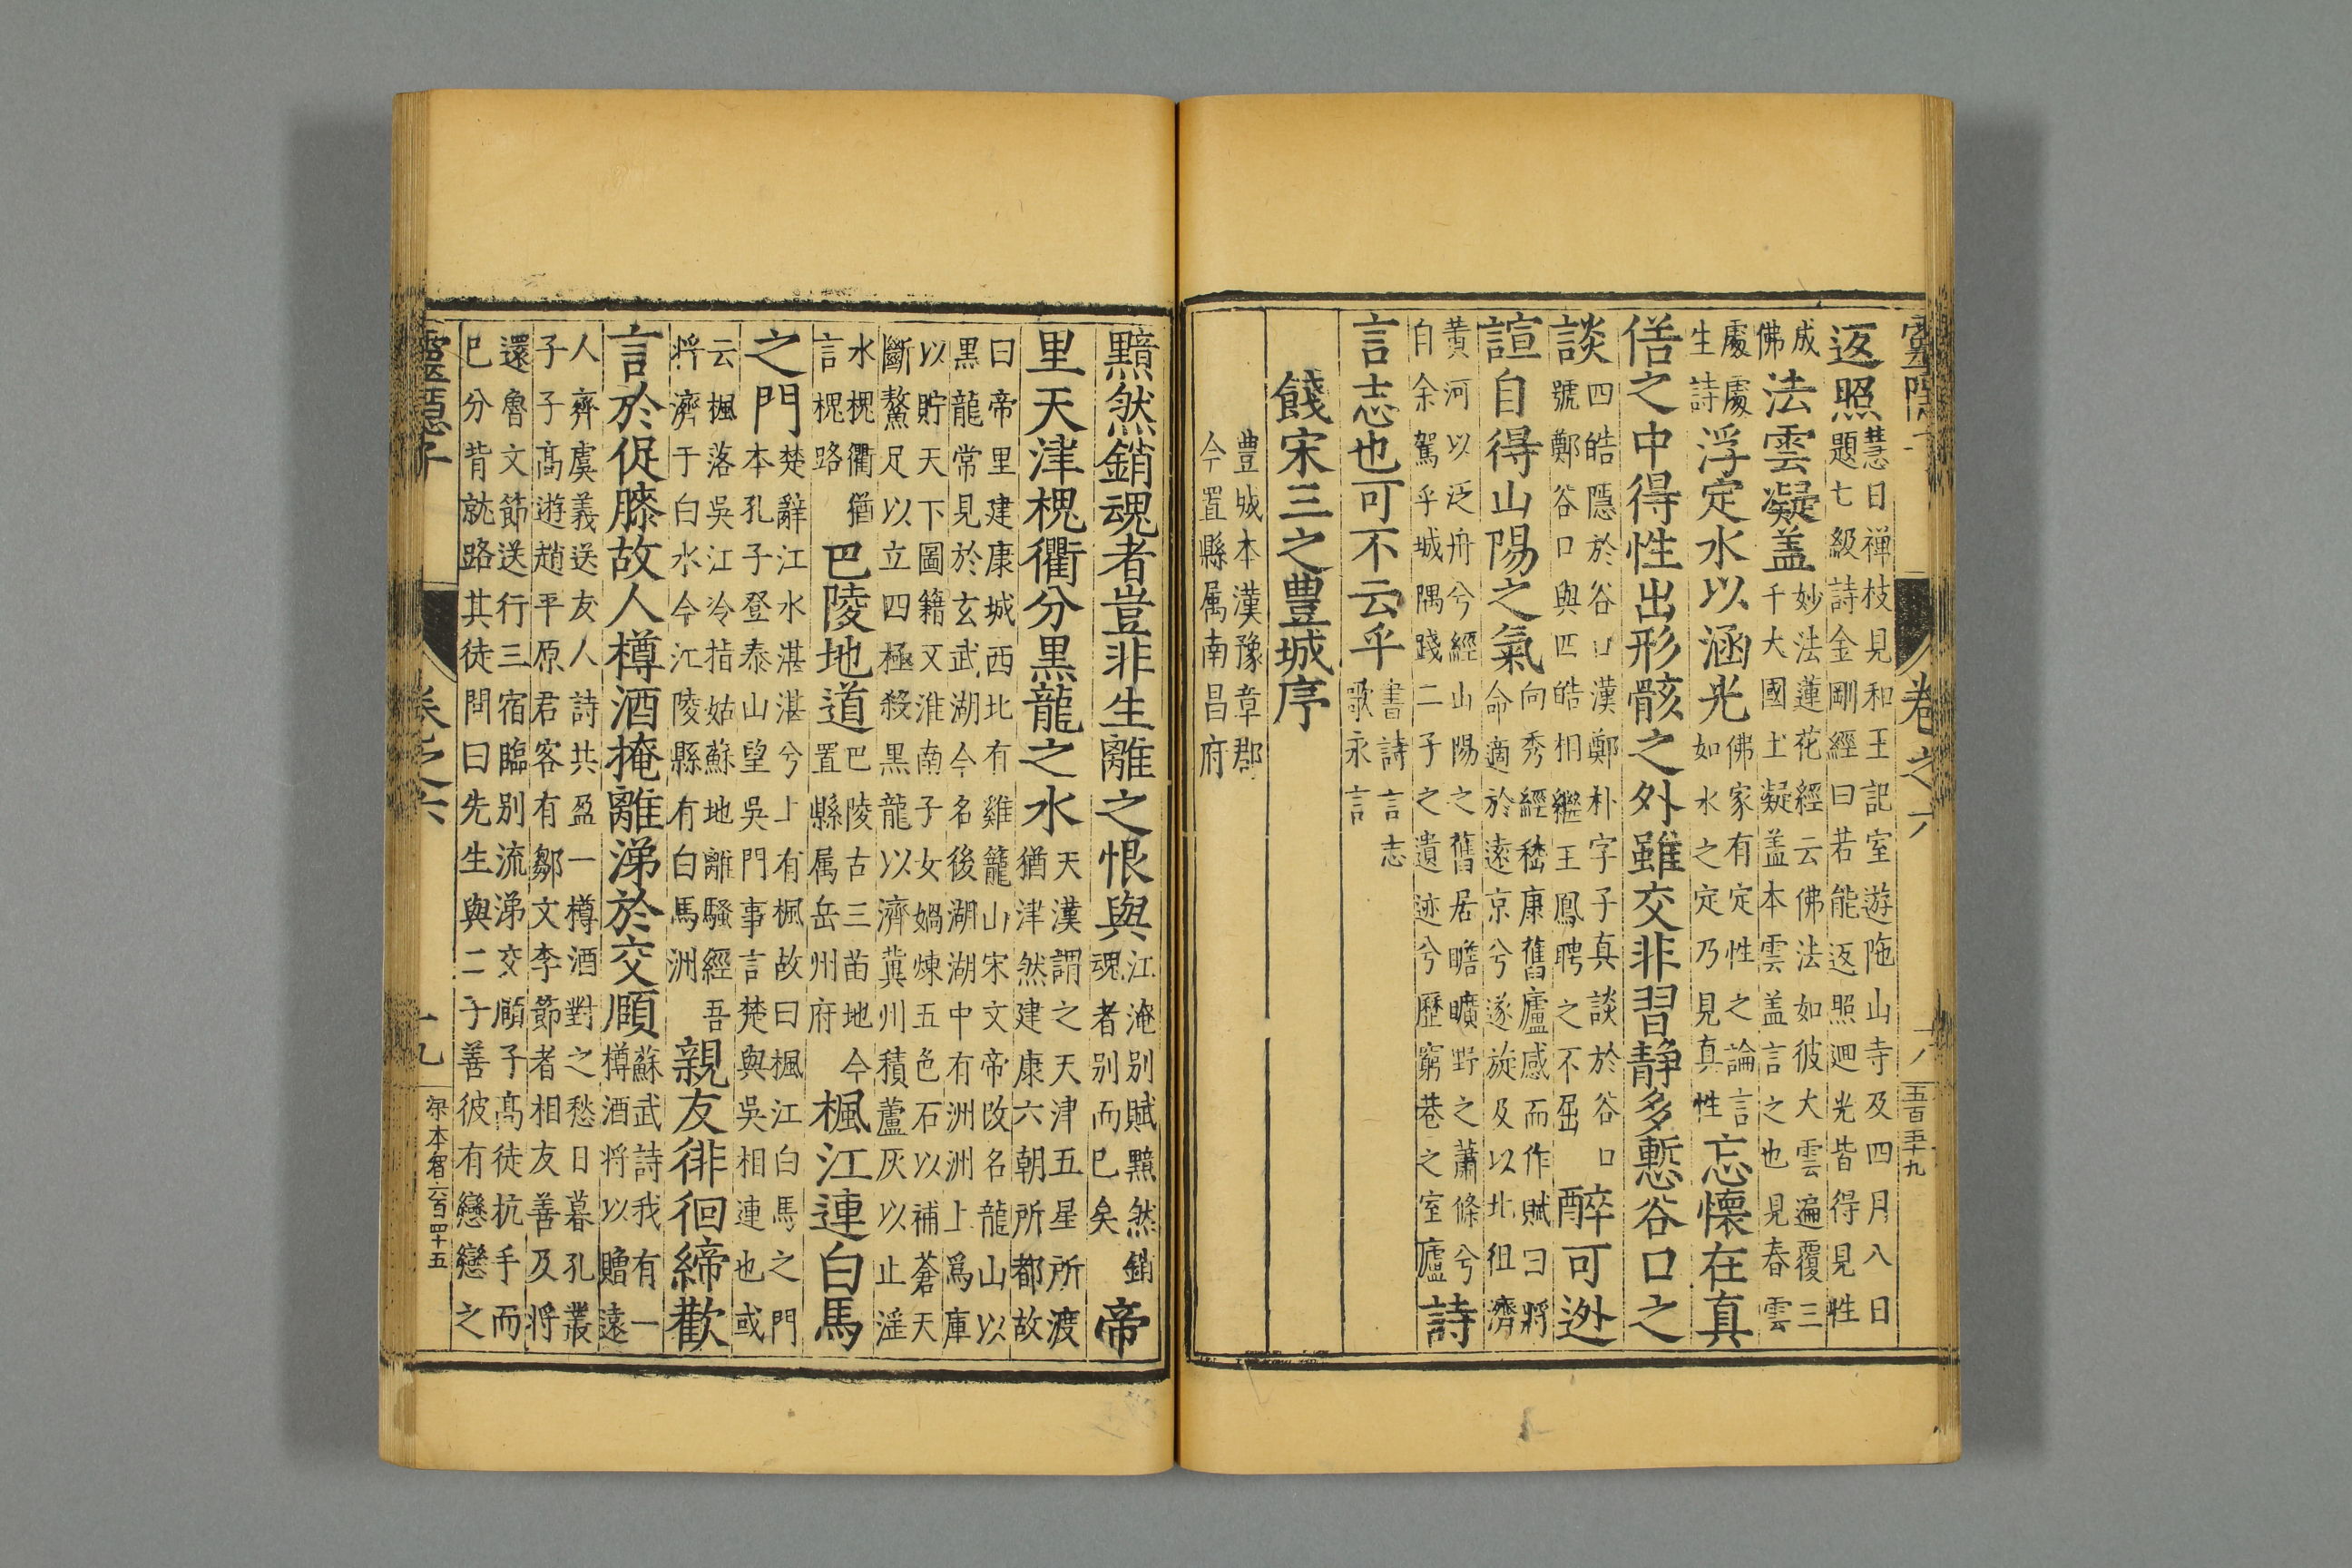 返照慧日禅枝見和王記室遊陁山寺及四月八日
題七級詩金剛經曰若能返照廻光皆得見性
成佛法雲凝盖妙法蓮花經云佛法如彼大雲遍覆三
千大國土凝盖本雲盖言之也見春雲
處處生詩浮定水以涵光佛家有定性之論言
如水之定乃見真性忘懷在真
俗之中得性出形骸之外雖交非習静多慙谷口之
談四皓隱於谷口漢鄭朴字子真談於谷口
號鄭谷口與四皓相繼王鳳聘之不屈醉可迯
諠自得山陽之氣向秀經嵇康舊廬感而作賦曰將
命適於遠京兮遂旋及以北徂濟
黄河以泛舟兮經山陽之舊居瞻曠野之蕭條兮
自余駕乎城隅踐二子之遺迹兮歷窮巷之室廬詩
言志也可不云乎書詩言志
歌永言
餞宋三之豊城序
豊城本漢豫章郡
今置縣属南昌府
卷之六
五百五十九
黯然銷魂者豈非生離之恨與江淹别賦黯然銷
魂者别而已矣帝
里天津槐衢分黒龍之水天漢謂之天津五星所渡
猶津然建康六朝所都故
曰帝里建康城西北有雞籠山宋文帝改名龍山以
黒龍常見於玄武湖今名後湖湖中有洲洲上爲庫
以貯天下圖籍又淮南子女媧煉五色石以補蒼天
斷鰲足以立四極殺黒龍以濟冀州積蘆灰以止滛
水槐衢猶
言槐路巴陵地道巴陵古三苗地今
置縣属岳州府楓江連白馬
之門楚辭江水湛湛兮上有楓故曰楓江白馬之門
本孔子登泰山望吳門事言楚與吳相連也或
云楓落吳江冷指姑蘇地離騷經吾
将濟于白水今江陵縣有白馬洲親友徘徊締歡
言於促膝故人樽酒掩離涕於交頋蘇武詩我有一
樽酒将以贈遠
人齊虞義送友人詩共盈一樽酒對之愁日暮孔叢
子子髙遊趙平原君客有鄒文李節者相友善及将
還魯文節送行三宿臨别流涕交頋子髙徒抗手而
已分背就路其徒問曰先生與二子善彼有戀戀之
靈隱子
卷之六
十九